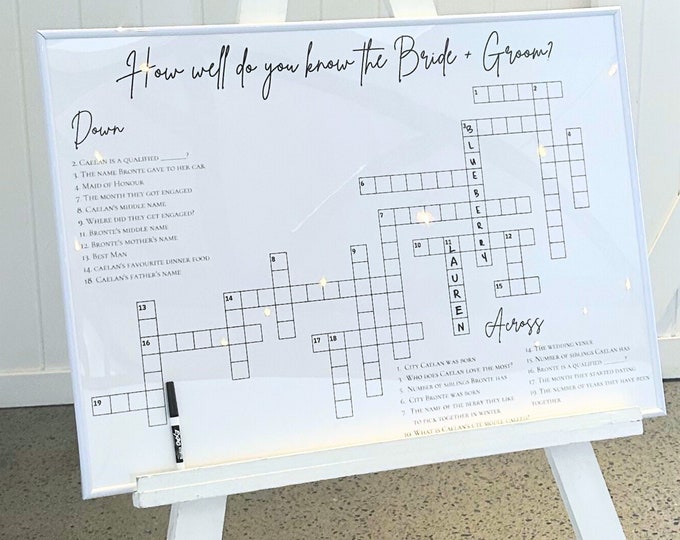 How well do you know the Bride + Groom?
Down
2. Caelan is a qualified ______?
3. The name Bronte gave to her car
4. Maid of Honour
7. The month they got engaged
8. Caelan's middle name
9. Where did they get engaged?
11. Bronte's middle name
12. Bronte's mother's name
13. Best Man
14. Caelan's favourite dinner food
18. Caelan's father's name
1 2
3
4
BLUEBERRY
6
7
10 11 12
LAUREN
8 9
15
13 14
16 17 18
19
Across
1. City Caelan was born
3. Who does Caelan love the most?
5. Number of siblings Bronte has
6. City Bronte was born
7. The name of the berry they like
to pick together in winter
10. What is Caelan's model called?
14. The wedding venue
15. Number of siblings Caelan has
16. Bronte is a qualified ______?
17. The month they started dating
19. The number of years they have been
together
EXPO